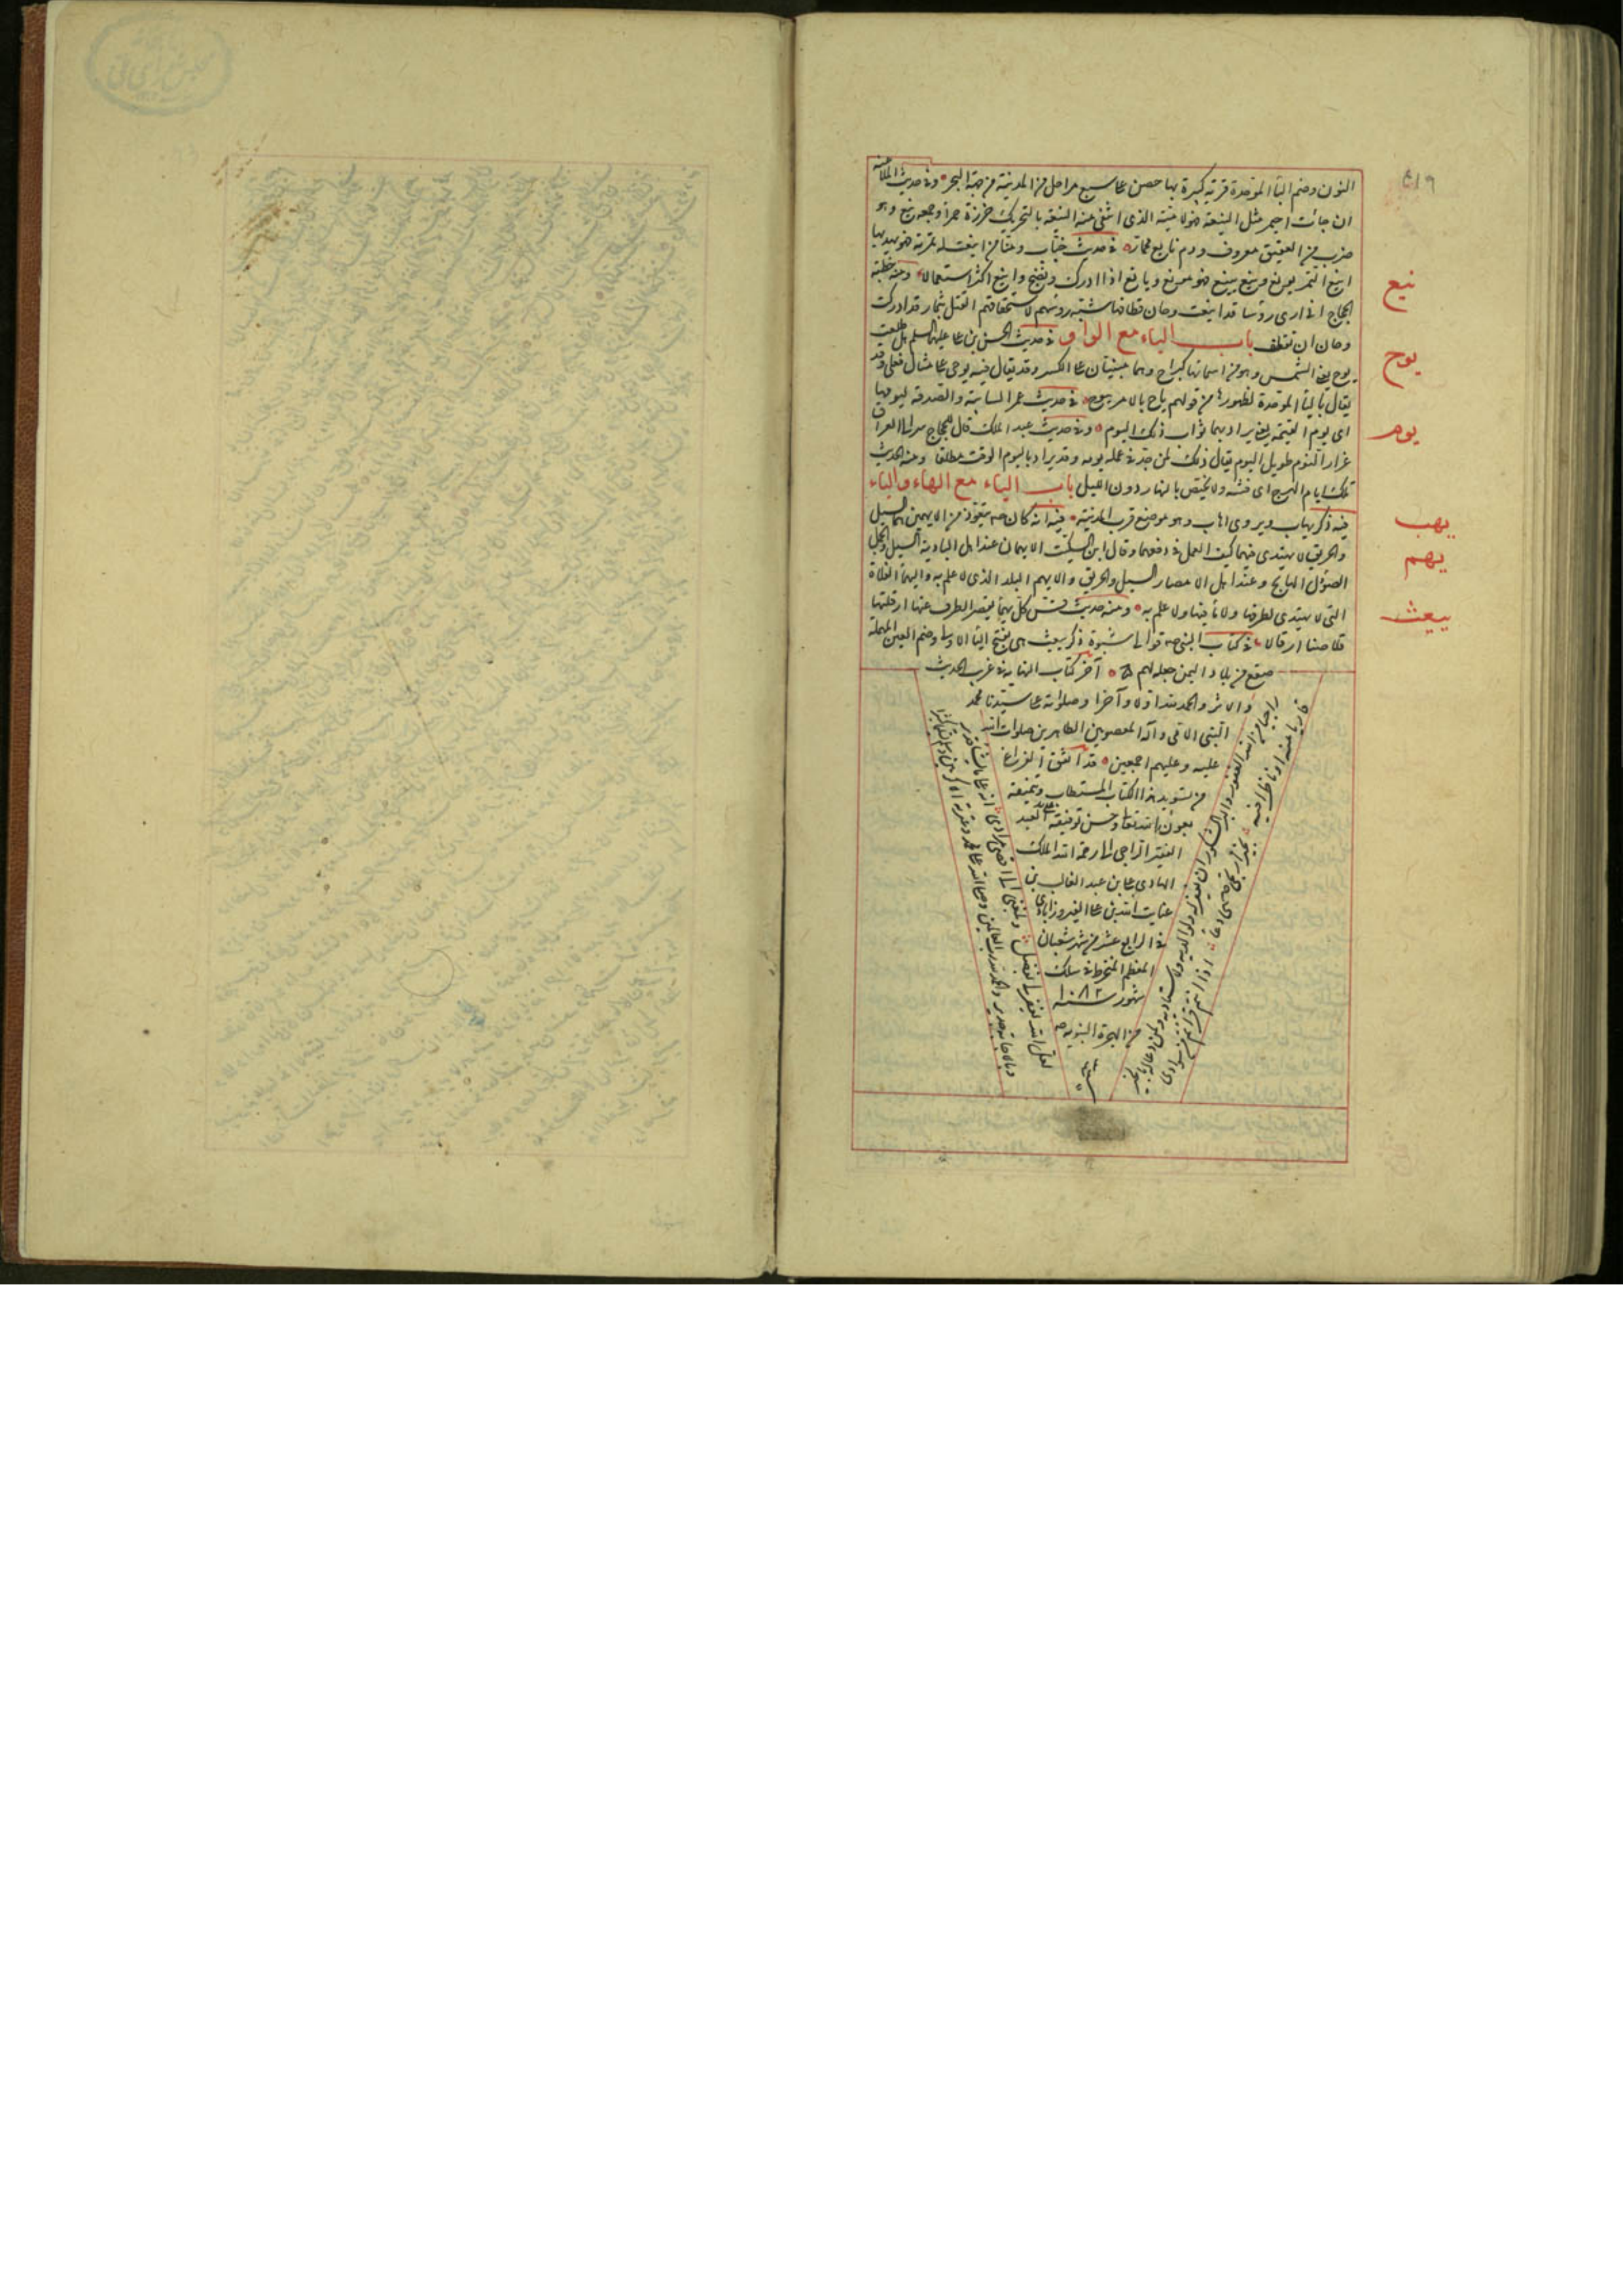 النون وضم الباء الموحدة قرية كبيرة بها حصن على سبع مراحل من المدينة من جهة البحر وفى حديث الملاعنه
ان جائت به احيمر مثل الينعة فهو لابيه الذى انتفى منه الينعة بالتحريك خرزة حمرا وجمعه ينع وهو
ضرب من العقيق معروف ودم يانع محمارّ فى حديث خباب ومنا من اينعت له ثمرته فهو يهدبها
اينع الثمر يونع وينع يينع فهو مونع ويانع اذا ادرك ونضج واينع اكثر استعمالا ومنه خطبة
الحجاج انى ارى رؤسا قد اينعت وحان قطافها شبّه رؤسهم لاستحقاقهم القتل بثمار قد ادركت
وحان ان تقطف باب الياء مع الواو فى حديث الحسن بن على عليهما السلم هل طلعت
يوح يعنى الشمس وهو من اسمائها كبراح وهما مبنيتان على الكسر وقد يقال فيه يوحى على مثال فعلى وقد
يقال بالباء الموحدة لظهورها من قولهم باح بالامر يبوح فى حديث عمر السائبة والصدقة ليومهما
اى يوم القيمة يعنى يراد بهما ثواب ذلك اليوم وفى حديث عبد الملك قال للحجاج سر الى العراق
غرار النوم طويل اليوم يقال ذلك لمن جدّ فى عمله يومه وقد يراد باليوم الوقت مطلقا ومنه الحديث
تلك ايام الهرج اى وقته ولا يختص بالنهار دون الليل باب الياء مع الهاء والياء
فيه ذكر يهاب ويروى اهاب وهو موضع قرب المدينة فيه انه كان يتعوذ من الايهمين هما السيل
والحريق لا يهتدى فيهما كيف العمل فى دفعهما وقال ابن السكيت الايهمان عند اهل البادية السيل والجمل
الصؤل الهايج وعند اهل الامصار السيل والحريق والايهم البلد الذى لا علم به واليهما الفلاة
التى لا يهتدى لطرقها ولا ماء فيها ولا علم به ومنه حديث قس كل يهماء يقصر الطرف عنها ارقلتها
قلاصنا ارقالا فى كتاب النبى لاقوال شبوة ذكر يبعث هى بفتح الياء الاولى وضم العين المهملة
صقع من بلاد اليمن جعله لهم آخر كتاب النهاية فى غريب الحديث
والاثر والحمد لله اولا وآخرا وصلواته على سيدنا محمد
النبى الامى وآله المعصومين الطاهرين صلوات الله
عليه وعليهم اجمعين قد اتفق الفراغ
من تسويد هذا الكتاب المستطاب وتنميقه
بعون الله تعالى وحسن توفيقه على يد العبد
الفقير الراجى الى رحمة الله الملك
الهادى على بن عبد الغالب بن
عنايت الله بن على الفيروزابادى
فى الرابع عشر من شهر شعبان
المعظم المنخرط فى سلك
شهور سنه ١٠٨٢
من الهجرة النبوية
راجيا من الله الغفور البر الشكور ان يغفر له ولوالديه
لعل الله يغفر لى بفضل
وبالاجابة جدير والحمد لله رب العالمين وصلى الله على محمد وعترته
ينع
يوح
يوم
يهب
يهم
يبعث
٤١٩